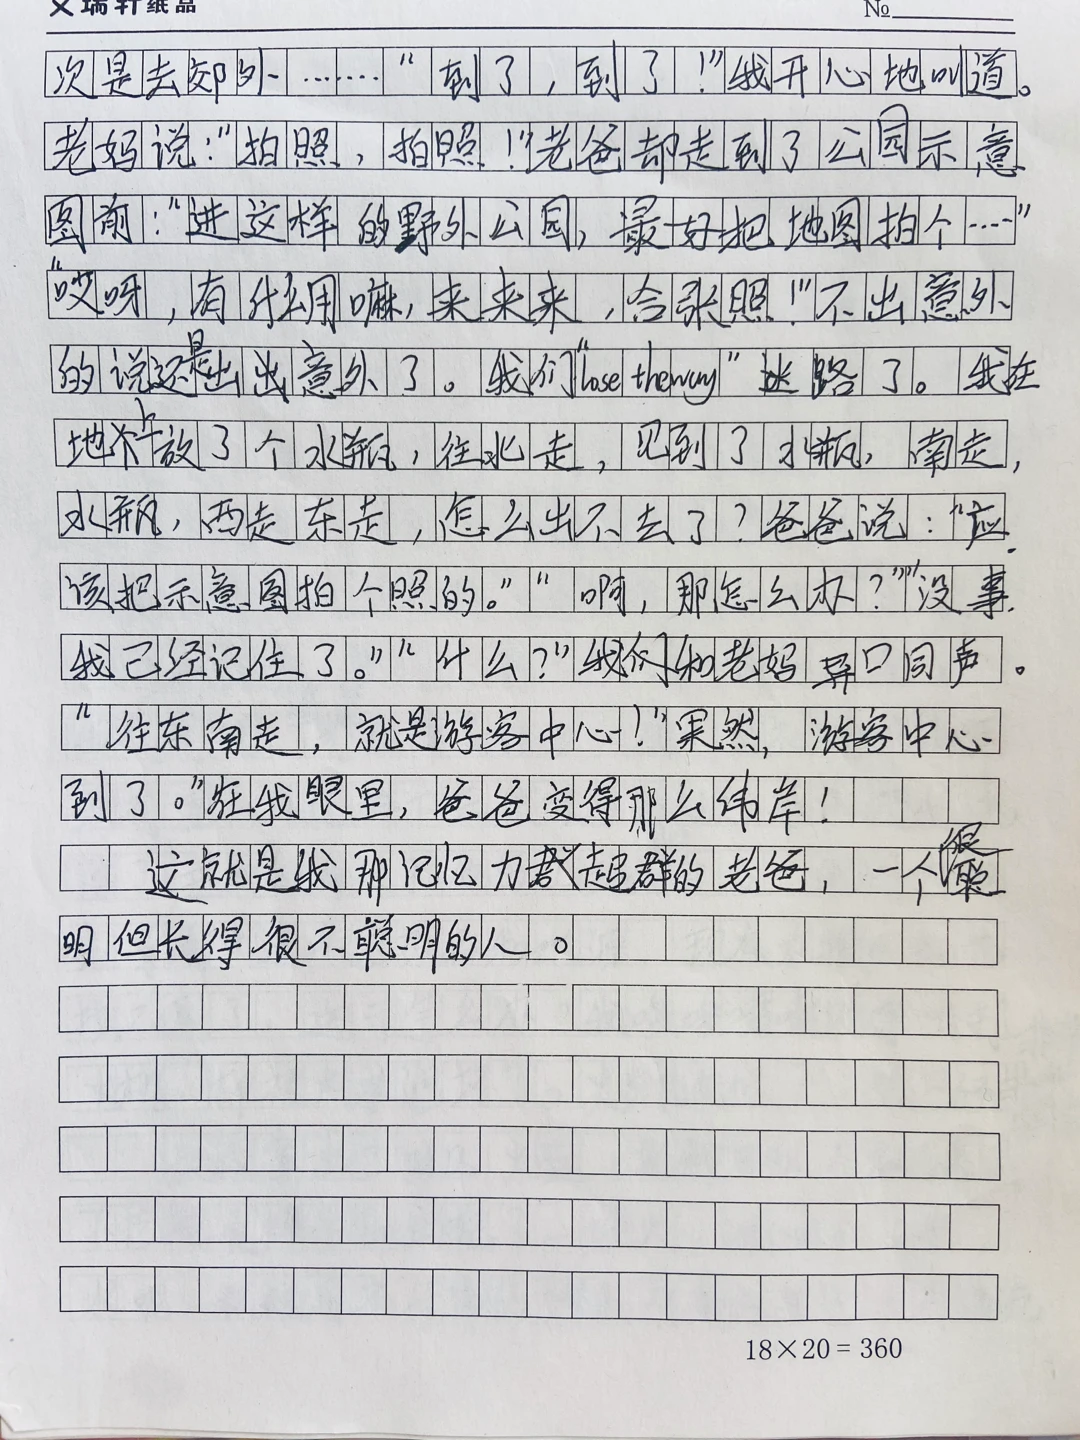 艾瑞轩纸品 №
次是去郊外……“到了，到了！”我开心地叫道。
老妈说：“拍照，拍照！”老爸却走到了公园示意
图前：“进这样的野外公园，最好把地图拍个……”
“哎呀，有什么用嘛，来来来，合张照！”不出意外
的说还是出出意外了。我们“lose the way”迷路了。我在
地上放了个水瓶，往北走，见到了水瓶，南走，
水瓶，西走东走，怎么出不去了？爸爸说：“应
该把示意图拍个照的。”“啊，那怎么办？”“没事，
我己经记住了。”“什么？”我们和老妈异口同声。
“往东南走，就是游客中心！”果然，游客中心
到了。”在我眼里，爸爸变得那么伟岸！
这就是我那记忆力超群的老爸，一个很聪
明但长得很不聪明的人。
18×20=360